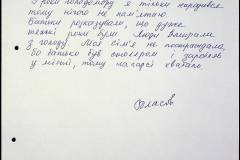 З роки голодомору я тільки народився
тому нічого не пам'ятаю.
Батьки розказували, що дуже
тяжкі роки були. Люди вмирали
з голоду. Моя сім'я не постраждала,
бо батько був столяром і заробляв
у місті, тому на поді хватало.
Власів